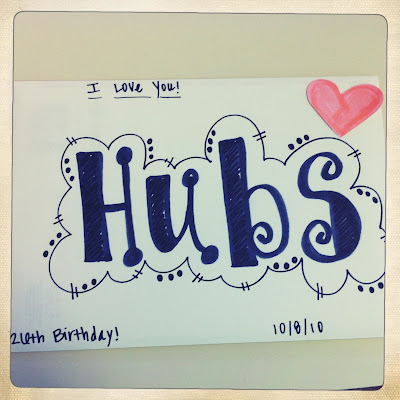 I Love You!
Hubs
26th Birthday! 10/8/10